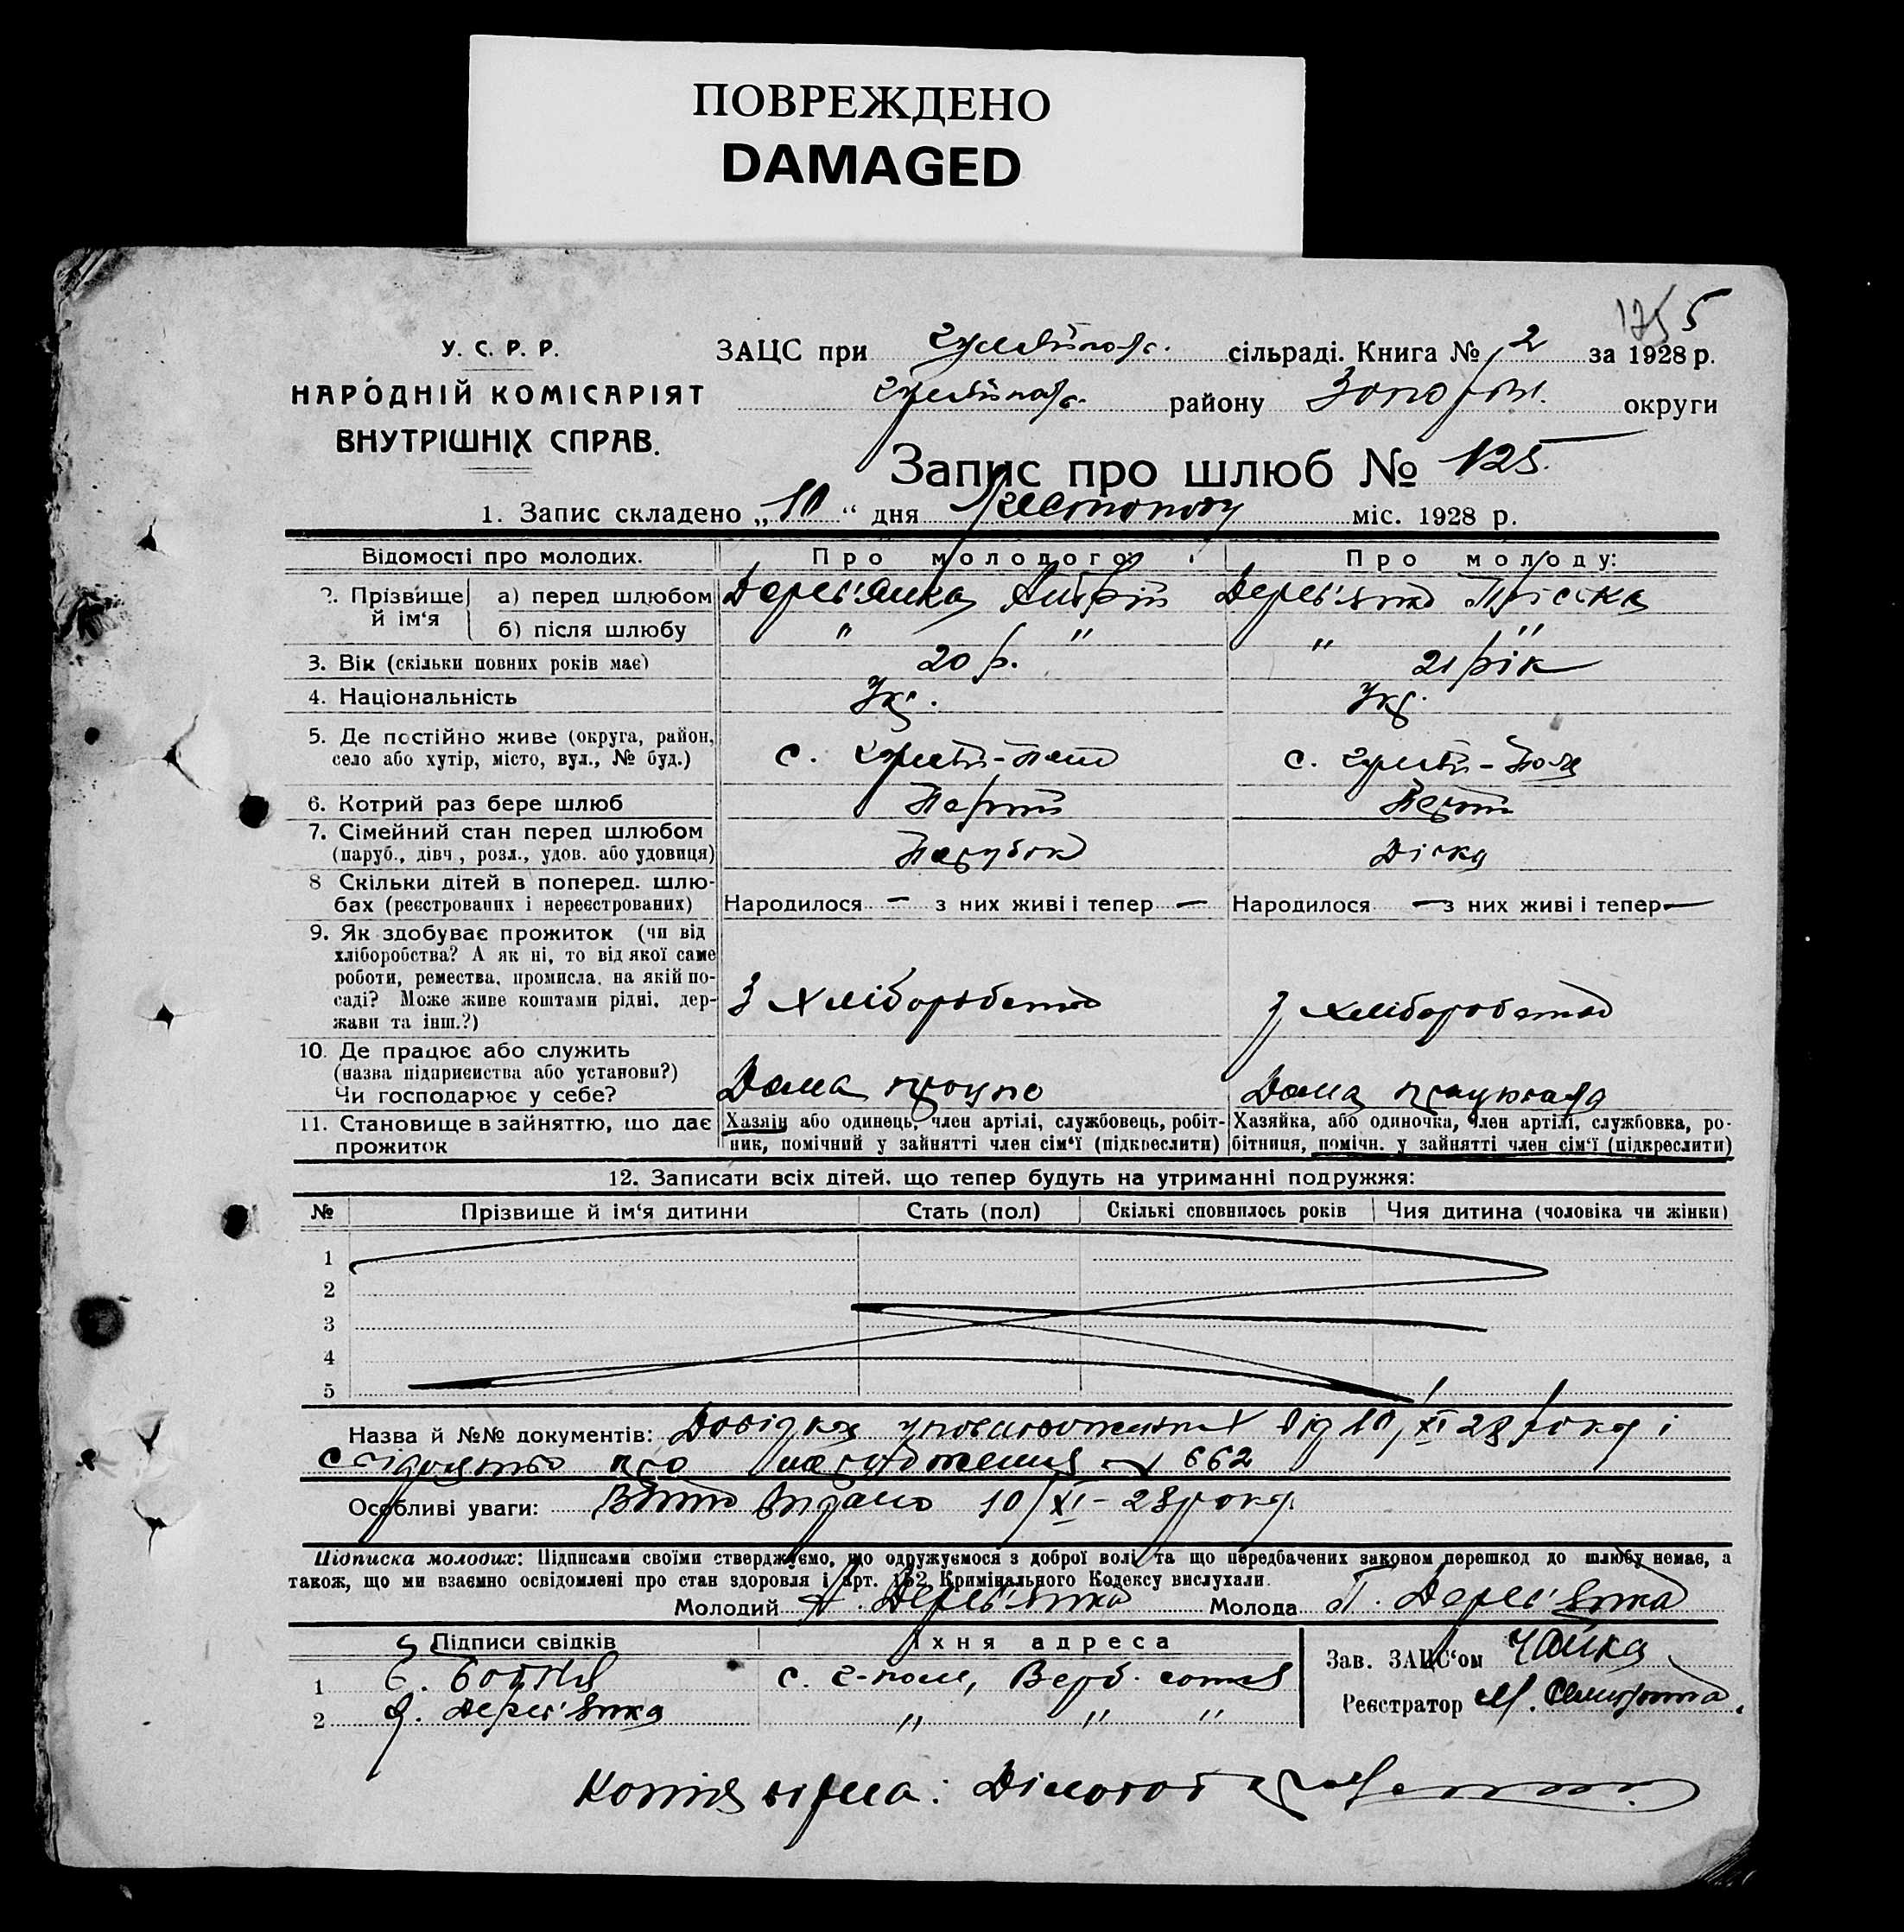 ПОВРЕЖДЕНО
DAMAGED
5
У. С. Р. Р.
НАРОДНІЙ КОМІСАРІЯТ
ВНУТРІШНІХ СПРАВ.
ЗАЦС при Гуляйпольс. сільраді. Книга № 2 за 1928 р.
Гуляйпольс. району Запоріж. округи
Запис про шлюб № 125.
1. Запис складено „10“ дня Листопаду міс. 1928 р.
Відомості про молодих. Про молодого: Про молоду:
2. Прізвище й ім‘я а) перед шлюбом Дерев'янка Андрій Дерев'янка Пріська
б) після шлюбу " " " "
3. Вік (скільки повних років має) 20 р. 21 рік
4. Національність Укр. Укр.
5. Де постійно живе (округа, район, село або хутір, місто, вул., № буд.) с. Гуляй-Поле с. Гуляй-Поле
6. Котрий раз бере шлюб Перший Перший
7. Сімейний стан перед шлюбом (паруб., дівч., розл., удов. або удовиця) Парубок Дівка
8 Скільки дітей в поперед. шлюбах (реєстрованих і нереєстрованих) Народилося — з них живі і тепер — Народилося — з них живі і тепер —
9. Як здобуває прожиток (чи від хліборобства? А як ні, то від якої саме роботи, ремества, промисла, на якій посаді? Може живе коштами рідні, держави та інш.?) З хліборобства З хліборобства
10. Де працює або служить (назва підприємства або установи?) Чи господарює у себе? Дома працює Дома
11. Становище в зайняттю, що дає прожиток Хазяїн або одинець, член артілі, службовець, робітник, помічний у зайнятті член сім‘ї (підкреслити) Хазяйка, або одиночка, член артілі, службовка, робітниця, помічн. у зайнятті член сім‘ї (підкреслити)
12. Записати всіх дітей, що тепер будуть на утриманні подружжя:
№ Прізвище й ім‘я дитини Стать (пол) Скількі сповнилось років Чия дитина (чоловіка чи жінки)
1
2
3
4
5
Назва й №№ документів: Довідка уповноваженого від 10/XI 28 року і
свідоцтво про народження № 662
Особливі уваги: Витяг видано 10/XI-28 року
Підписка молодих: Підписами своїми стверджуємо, що одружуємося з доброї волі та що передбачених законом перешкод до шлюбу немає, а
також, що ми взаємно освідомлені про стан здоровля і арт. 152 Кримінального Кодексу вислухали.
Молодий А. Дерев'янка Молода П. Дерев'янка
Підписи свідків Їхня адреса Зав. ЗАЦС‘ом Чайка
1 с. Г-поле, Верб. сотня
2 Дерев'янка " " " Реєстратор М.
Копія вірна: Діловод